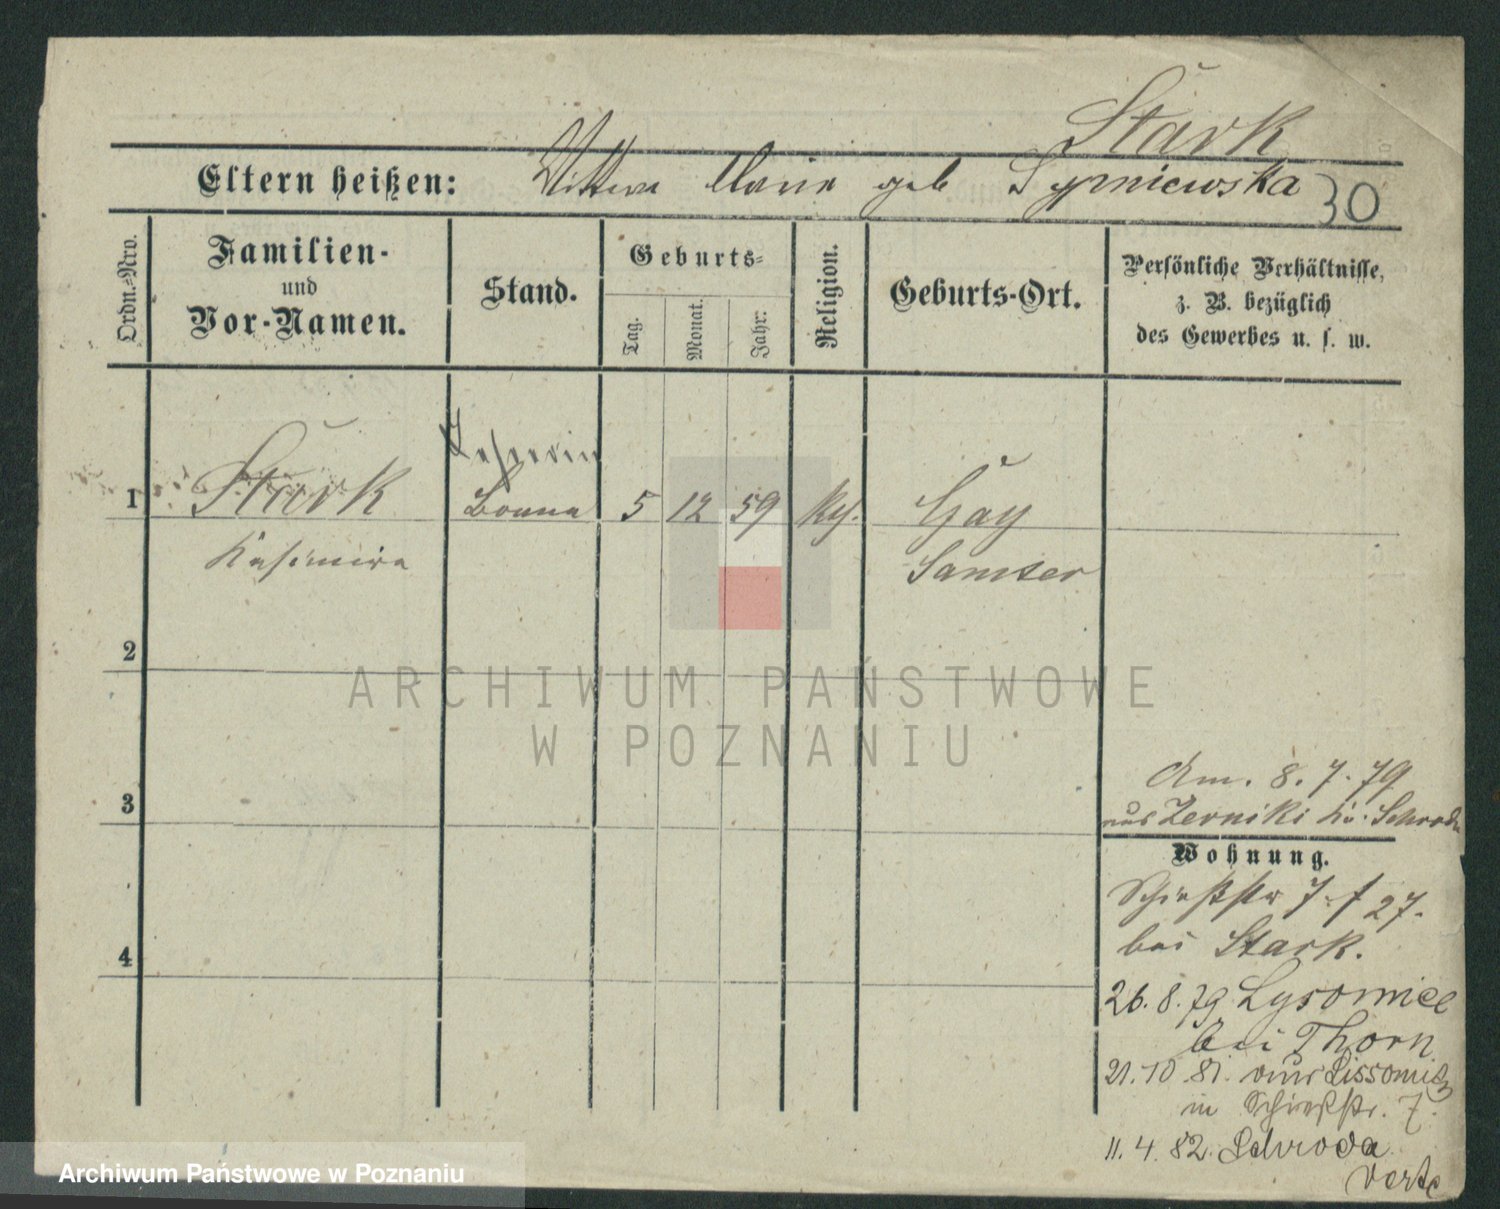 Stark
Eltern heißen: Wittwe Marie geb Szymiewska 30
Ordn.-Nro.
Familien-
und
Vor-Namen.
Stand.
Geburts-
Tag.
Monat.
Jahr:
Religion.
Geburts-Ort.
Persönliche Verhältnisse,
z. B. bezüglich
des Gewerbes u. s. w.
1 Stark Bonne 5 12 59 Gay
Kasimira Samter
2
ARCHIWUM PAŃSTWOWE
W POZNANIU
3
Am. 8. 7. 79
aus Zerniki Kr. Schroda
Wohnung.
Schießstr 7 f 27.
bei Stark.
4
26. 8. 79 Lysomice
bei Thorn
21. 10 81. aus Lissomitz
in Schießstr. 7.
11. 4. 82. Schroda
verte
Archiwum Państwowe w Poznaniu